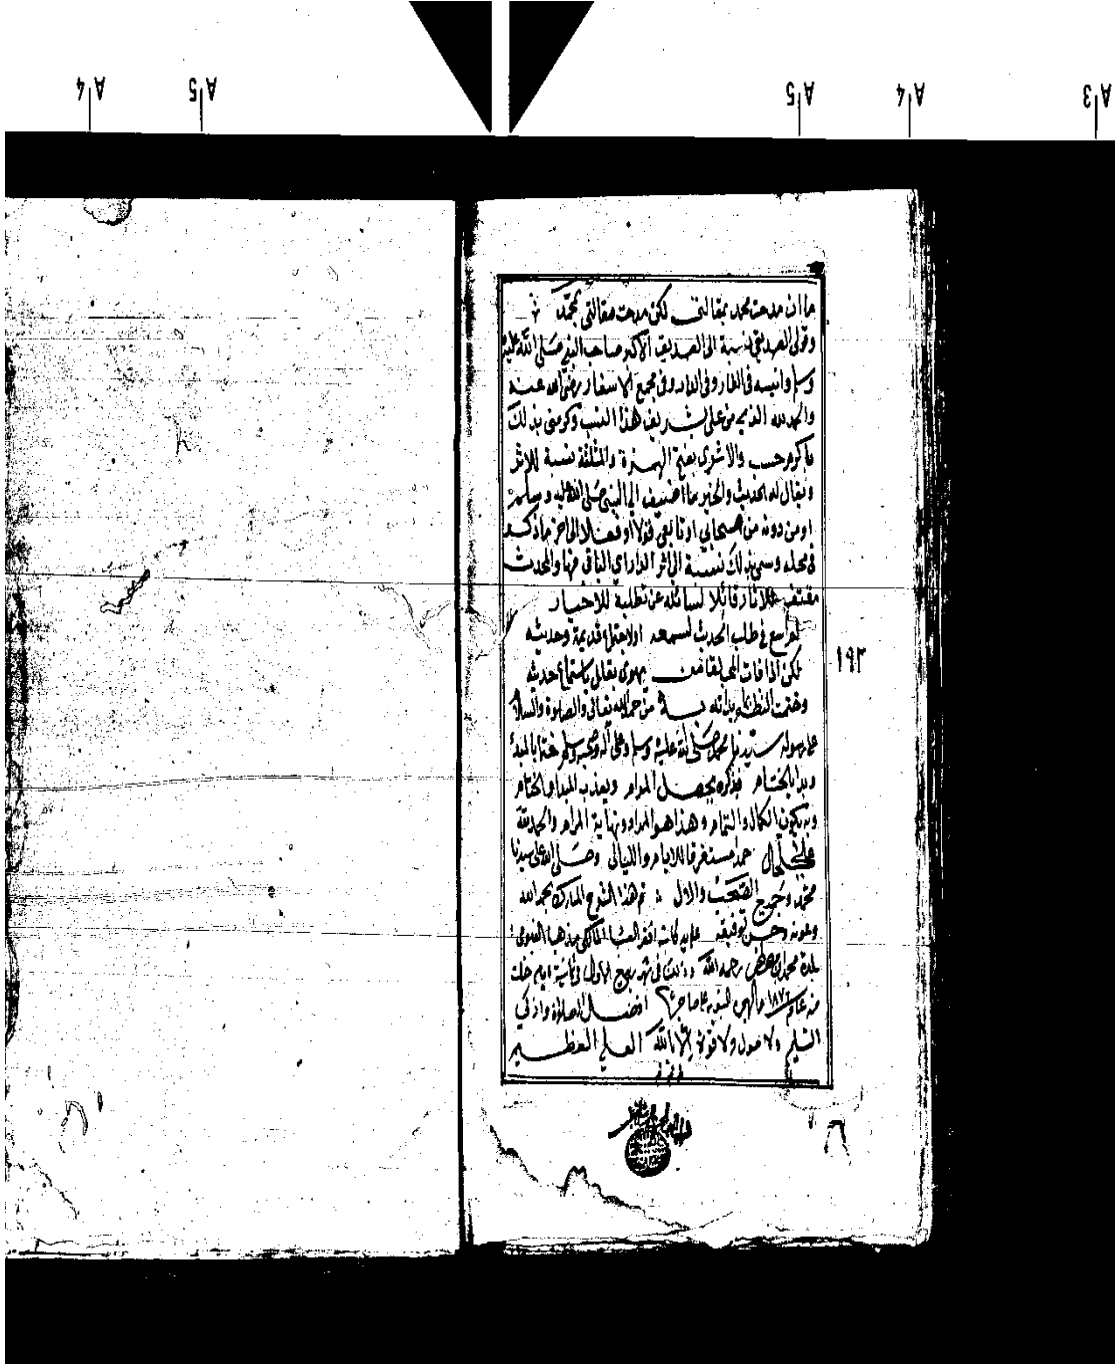 A 4 A 5 A 5 A 4 A 3
ما ان مدحت محمدا بمقالتي لكن مدحت مقالتي بمحمد
وقولى الصديقى نسبة الى الصديق الاكبر صاحب النبي صلى الله عليه
وسلم وانيسه فى الغار وفى الدار وفى مجمع الاسفار رضى الله عنه
والحمد لله الذى من على بشريف هذا النسب وكرمنى بذلك
ما كرم حسب والاثرى بفتح الهمزة والمثلثة نسبة للاثر
ويقال له الحديث والخبر ما اضيف الى النبى صلى الله عليه وسلم
او من دونه من صحابي او تابعى قولا او فعلا الى اخر ما ذكر
فى محله وسمى بذلك نسبة الى اثر الدار اي الباقى منها والمحدث
مقتف للاثار قائلا لسائله عن تطلبه للاخبار
لم اسع فى طلب الحديث لسمعة او لاجتماع قديمه وحديثه
لكن اذا فات المحب لقا من يهوى تعلل باستماع حديثه
١٩٢
وختمت النظم بما بداته به من حمد الله تعالى والصلاة والسلام
على رسوله سيدنا محمد صلى الله عليه وسلم وعلى آله وصحبه وسلم ختما بالمبدأ
وبدا بالختام فبذكره يحصل المرام ويعذب المبدا والختام
وبه يكون الكمال والتمام وهذا هو المراد ونهاية المرام والحمد لله
على كل حال حمدا مستغرقا للايام والليالى وصلى الله على سيدنا
محمد وجميع الصحب والال تم هذا الشرح المبارك بحمد الله
وعونه وحسن توفيقه على يد كاتبه افقر العباد المالكى مذهبا الفيومى
بلدة محمد رحمه الله وذلك فى شهر ربيع الاول فى ثمانية ايام خلت
من عام ١١٨٧ من الهجرة النبوية على صاحبها افضل الصلاة وازكي
التسليم ولا حول ولا قوة الا بالله العلي العظيم